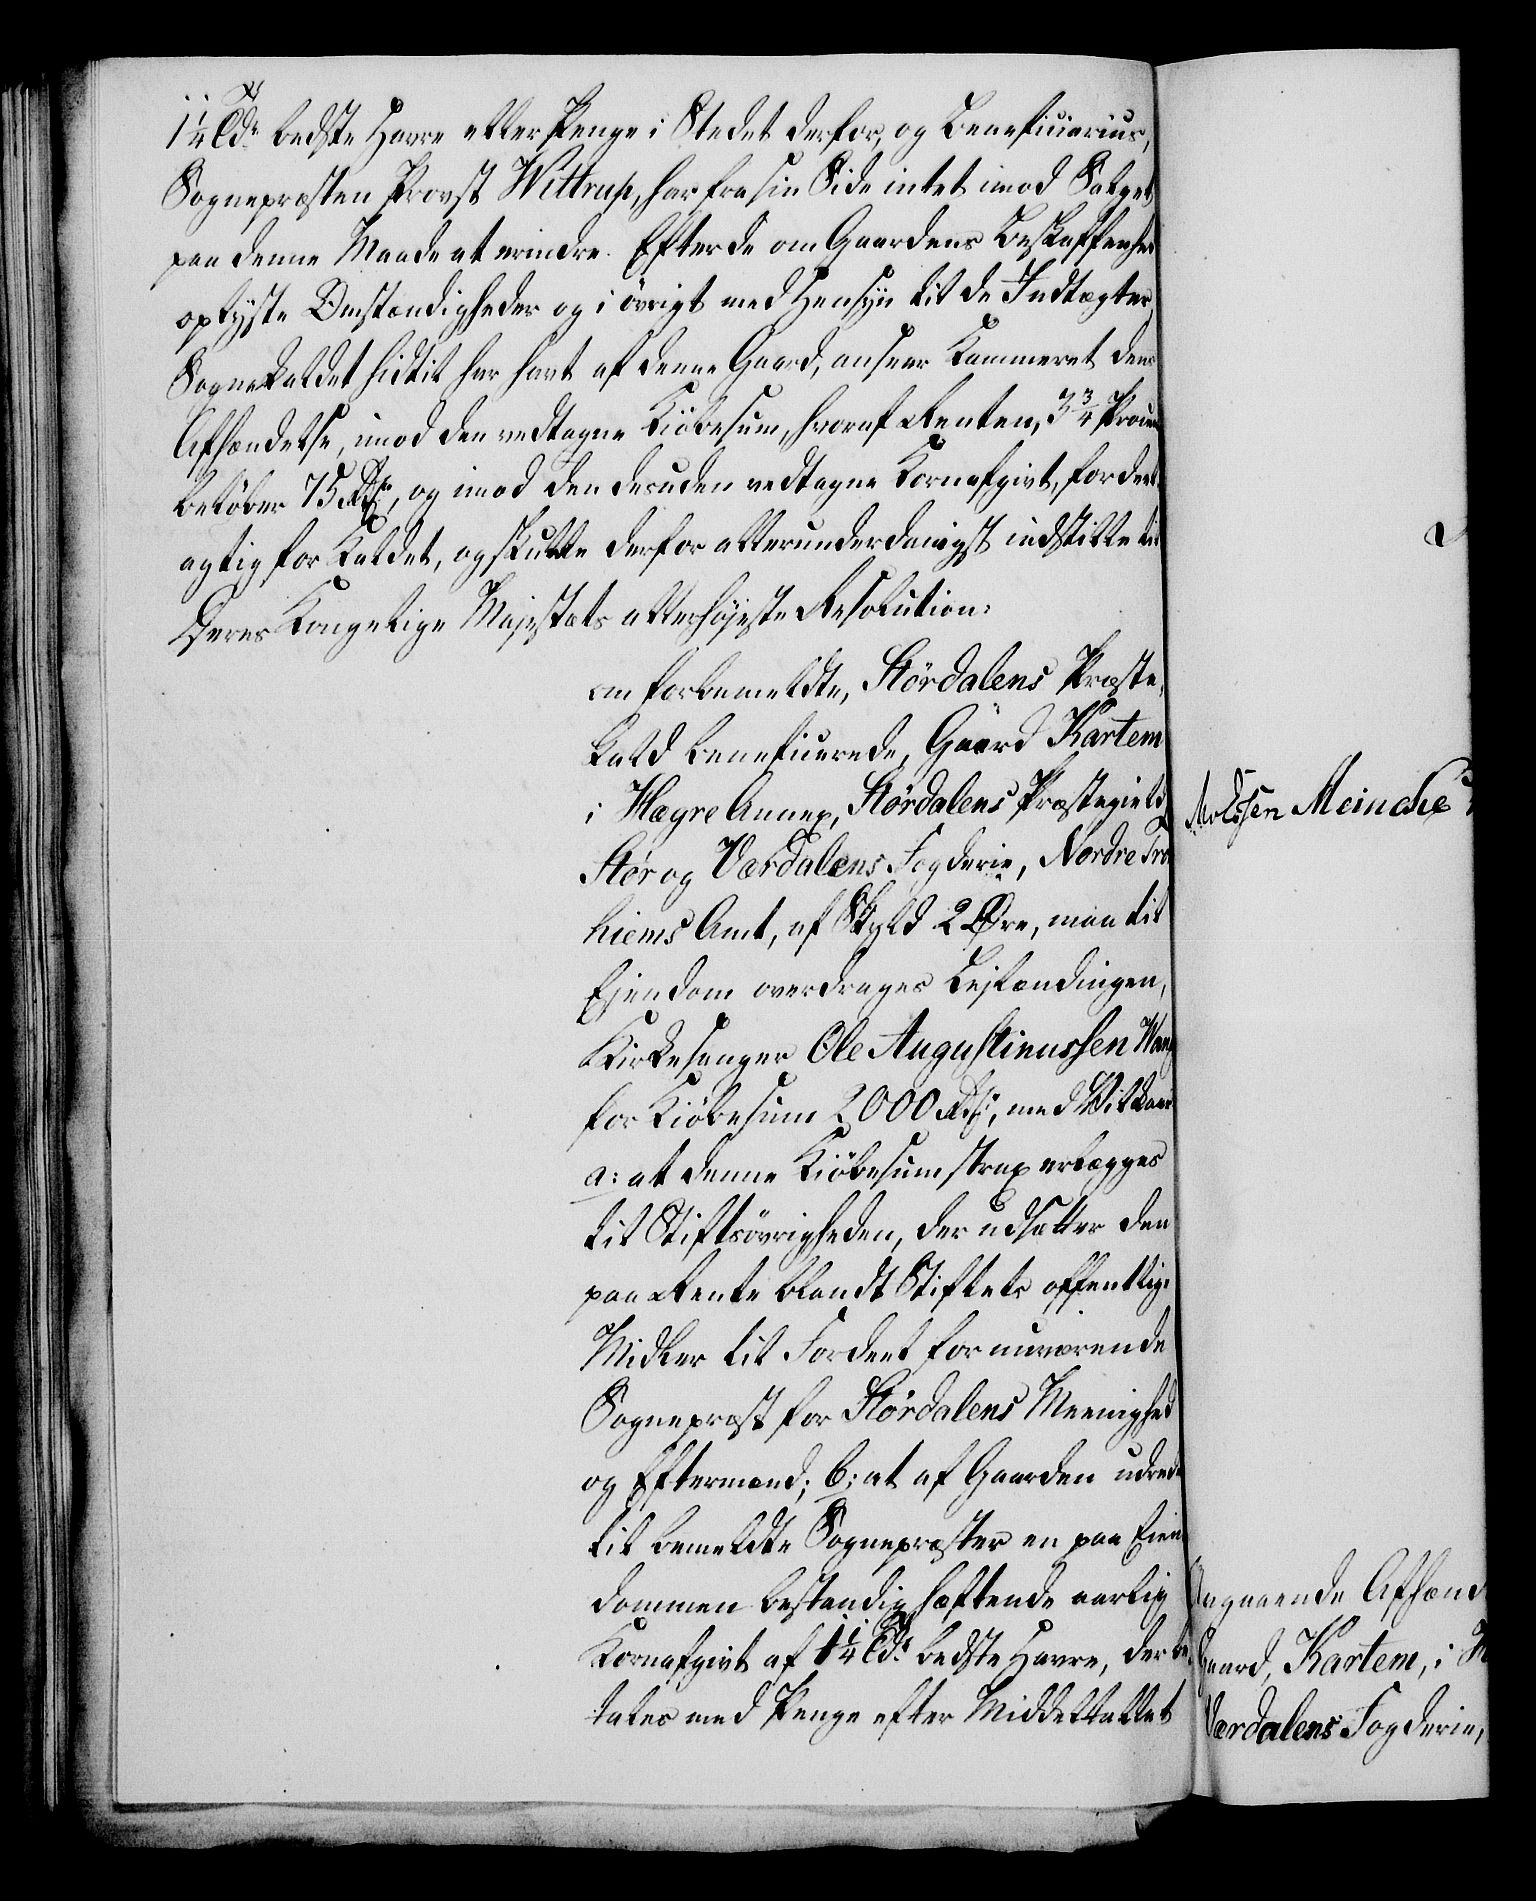 1¼ Tdr bedste Havre eller Penge i Stedet derfor, og Beneficiarius,
Sognepræsten Provst Wittrup, har fra sin Side intet imod Salget
paa denne Maade at erindre. Efter de om Gaardens Beskaffenhed
oplyste Omstændigheder og i övrigt med Hensyn til de Indtægter,
Sognekaldet hidtil har havt af denne Gaard, anseer Kammeret dens
Afhændelse, imod den vedtagne Kiöbesum, hvoraf Renten, 3¾ Procent
belöber 75 Rdlr, og imod den desuden vedtagne Kornafgivt, fordeel-
agtig for Kaldet, og skulle derfor allerunderdanigst indstille til
Deres Kongelige Majestæts allerhöjeste Resolution:
om forbemeldte, Stördalens Præste-
kald beneficerede, Gaard Kartem
i Hægre Annex, Stördalens Præstegield,
Stör og Værdalens Fogderie, Nordre Tron
hiems Amt, af Skyld 2 Øre, maa til
Eiendom overdrages Leilændingen,
Kirkesanger Ole Augustinussen Wang
for Kiöbesum 2000 Rdlr, med Vilkaar
a: at denne Kiöbesum strax erlægges
til Stiftsövrigheden, der udsætter den
paa Rente blandt Stiftets offentlige
Midler til Fordeel for nuværende
Sognepræst for Stördalens Meenighed
og Eftermænd; b: at af Gaarden udredes
til bemeldte Sognepræster en paa Eien-
dommen bestandig hæftende aarlig
Kornafgivt af 1¼ Tdr bedste Havre, der be-
tales med Penge efter Middeltallet
Meincke
Angaaende Afhænd
Gaard, Kartem, i H
Værdalens Fogderie,